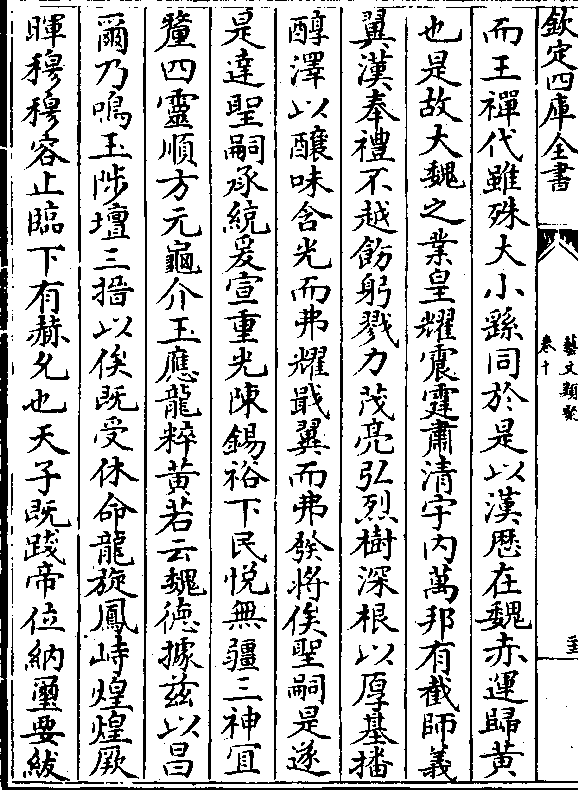 欽定四庫全書
藝文類聚
卷十
而王禪代雖殊大小繇同於是以漢厯在魏赤運歸黄
也是故大魏之業皇耀震霆肅清宇内萬邦有截師義
翼漢奉禮不越飭躬戮力茂亮弘烈樹深根以厚基播
醇澤以釀味含光而弗耀戢翼而弗發將俟聖嗣是遂
是達聖嗣承統爰宣重光陳錫裕下民悦無疆三神宜
釐四靈順方元龜介玉應龍粹黄若云魏德據兹以昌
爾乃鳴玉陟壇三揖以俟既受休命龍旋鳳峙煌煌厥
暉穆穆容止臨下有赫允也天子既踐帝位納璽要紱